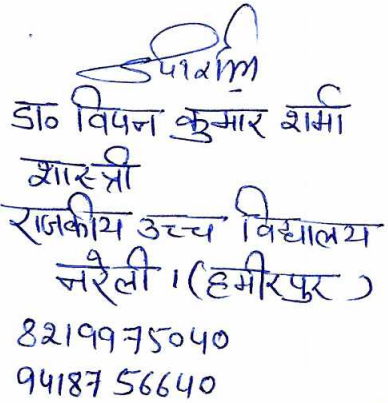 डा० विपन कुमार शर्मा
शास्त्री
राजकीय उच्च विद्यालय
नरेली । (हमीरपुर )
8219975040
9418756640